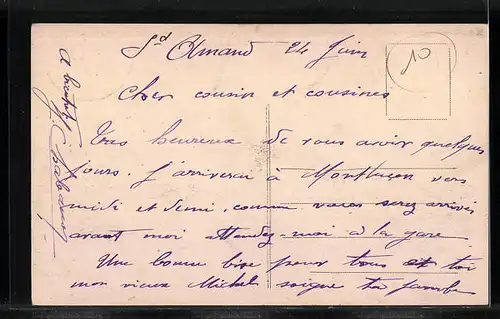 St Amand 24 Juin
10
Cher cousin et cousines
Très heureux de vous avoir quelques
jours. J'arriverai à Montluçon vers
midi et demi, comme vous serez arrivés
avant moi attendez-moi à la gare
Une bonne bise pour tous et toi
mon vieux Michel soigne ta jambe
a bientôt